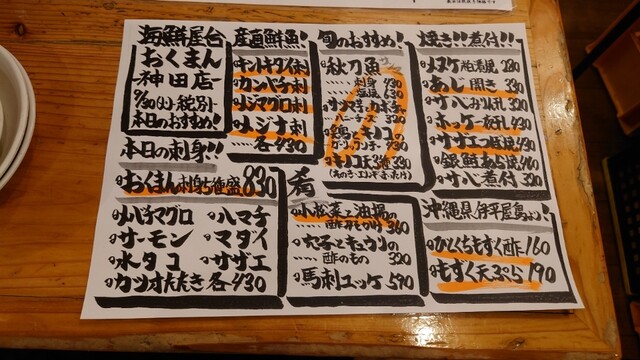 海鮮屋台
おくまん
神田店
9/30(火)税別
本日のおすすめ!
本日の刺身!!
おくまん刺身5種盛 830
バチマグロ
ハマチ
サーモン
マダイ
水タコ
サザエ
カツオたたき各430
産直鮮魚!
キントキダイ刺
カンパチ刺
メジマグロ刺
メジナ刺
各430
旬のおすすめ!
秋刀魚
刺身 430
塩焼 630
サンマとカボチャの
チーズ 320
鶏とキノコの
キノコ天3種 330
肴
小松菜と油揚の
酢みそかけ 360
穴子とキュウリの
酢のもの 320
馬刺ユッケ 590
焼き!!煮付!!
メヌケ粕漬焼 330
あじ開き 330
サバみりん干 320
ホッケ一夜干 430
サザエつぼ焼 430
銀鮭あら焼 460
サバ煮付 320
沖縄県伊平屋島より!
ひとくちもずく酢 160
もずく天ぷら 190